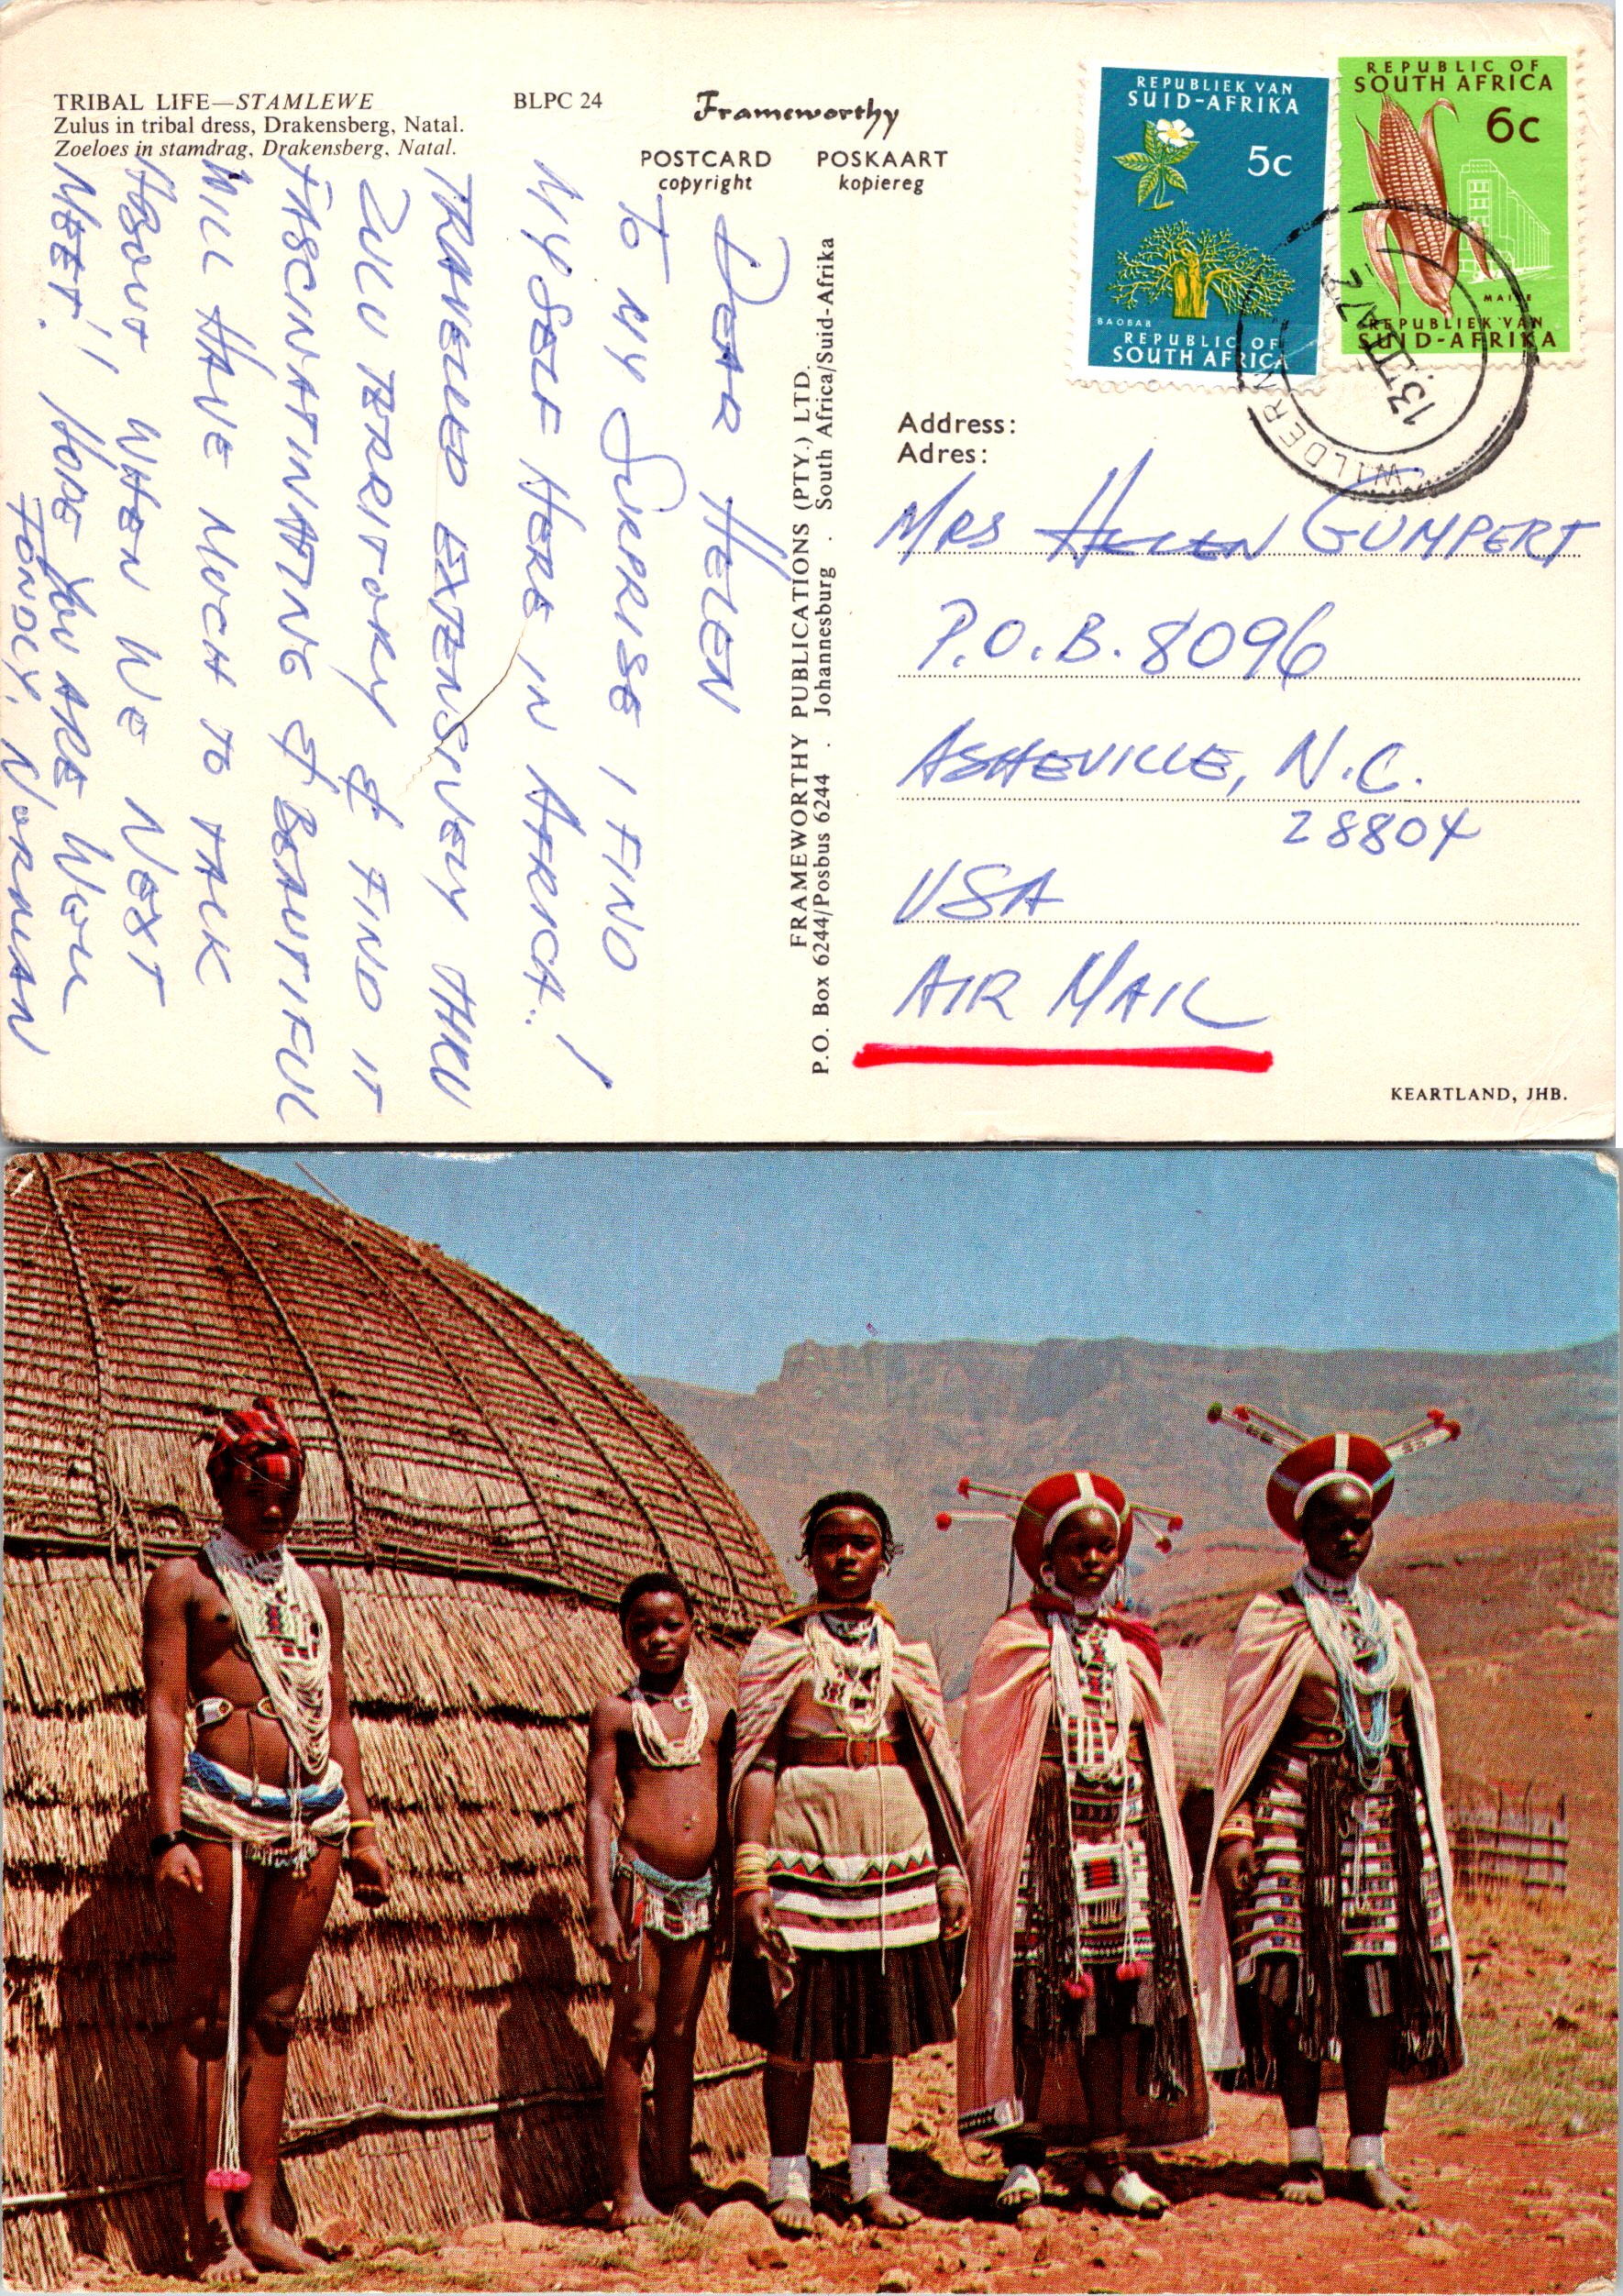 TRIBAL LIFE—STAMLEWE
Zulus in tribal dress, Drakensberg, Natal.
Zoeloes in stamdrag, Drakensberg, Natal.
BLPC 24
Frameworthy
POSTCARD POSKAART
copyright kopiereg
REPUBLIEK VAN
SUID-AFRIKA
5c
BAOBAB
REPUBLIC OF
SOUTH AFRICA
REPUBLIC OF
SOUTH AFRICA
6c
MAIZE
REPUBLIEK VAN
SUID-AFRIKA
WILDERN
13 II 72
DEAR HELEN
TO MY SURPRISE I FIND
MYSELF HERE IN AFRICA..!
TRAVELLED EXTENSIVELY THRU
ZULU TERRITORY & FIND IT
FASCINATINATING & BEAUTIFUL
WILL HAVE MUCH TO TALK
ABOUT WHEN WE NEXT
MEET!! HOPE YOU ARE WELL
FONDLY, NORMAN
FRAMEWORTHY PUBLICATIONS (PTY.) LTD.
P.O. Box 6244/Posbus 6244 . Johannesburg . South Africa/Suid-Afrika
Address:
Adres:
MRS HELEN GUMPERT
P.O.B. 8096
ASHEVILLE, N.C.
28804
USA
AIR MAIL
KEARTLAND, JHB.